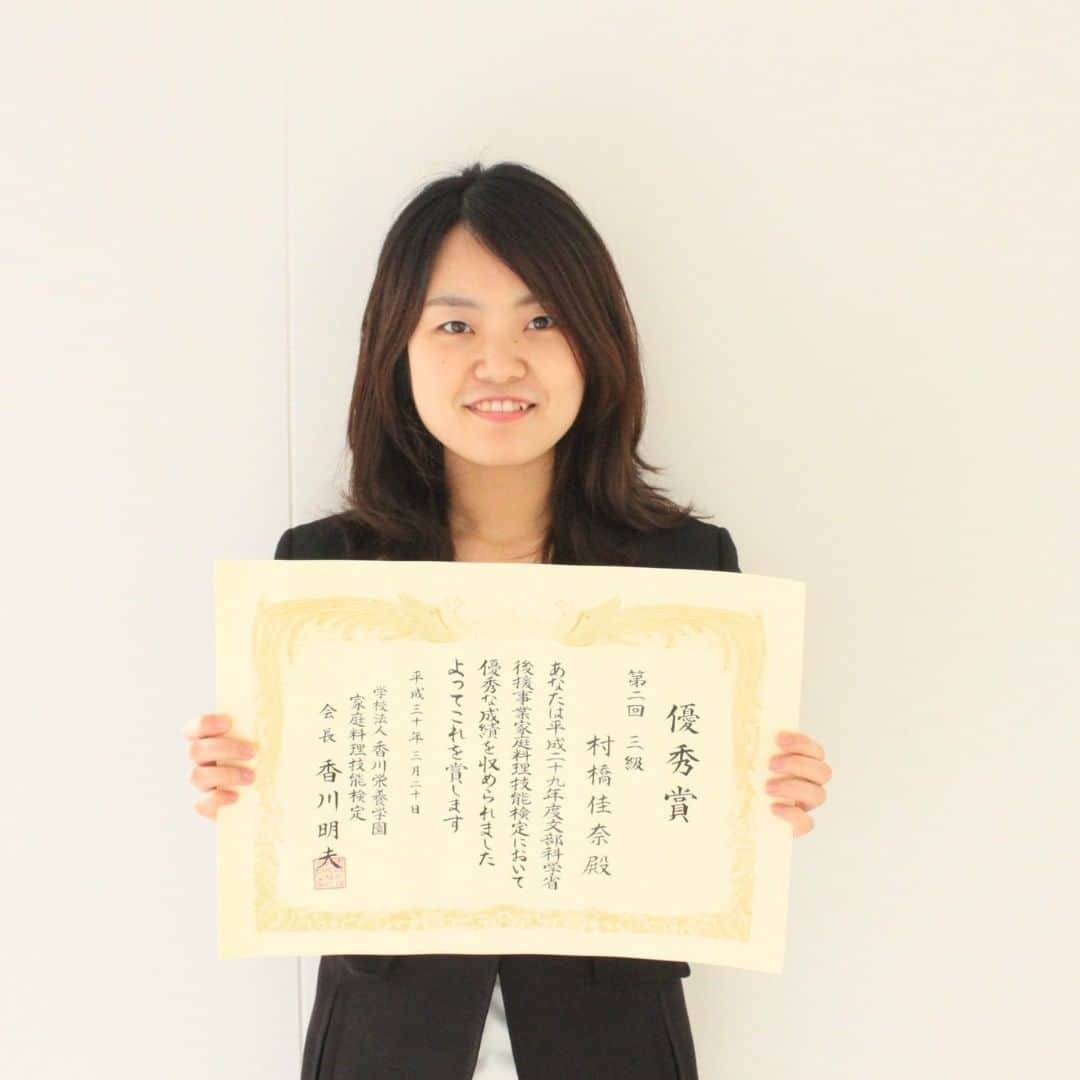 優秀賞
第二回 三級
村橋佳奈殿
あなたは平成二十九年度文部科学省
後援事業家庭料理技能検定において
優秀な成績を収められました
よってこれを賞します
平成三十年三月二十日
学校法人香川栄養学園
家庭料理技能検定
会長 香川明夫